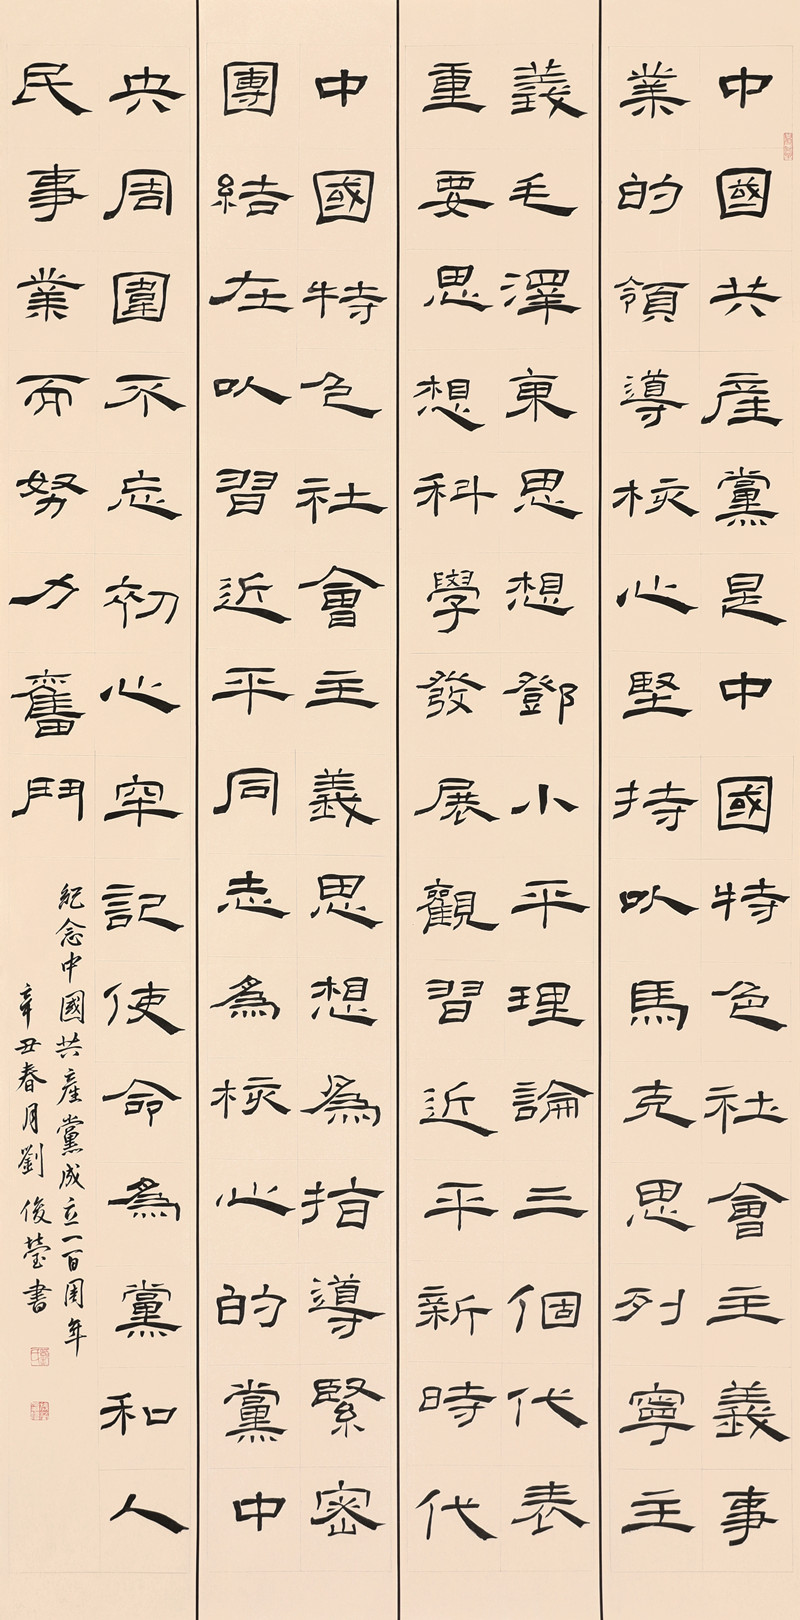 中國共產黨是中國特色社會主義事
業的領導核心堅持以馬克思列寧主
義毛澤東思想鄧小平理論三個代表
重要思想科學發展觀習近平新時代
中國特色社會主義思想為指導緊密
團結在以習近平同志為核心的黨中
央周圍不忘初心牢記使命為黨和人
民事業而努力奮鬥
紀念中國共產黨成立一百周年
辛丑春月劉俊瑩書